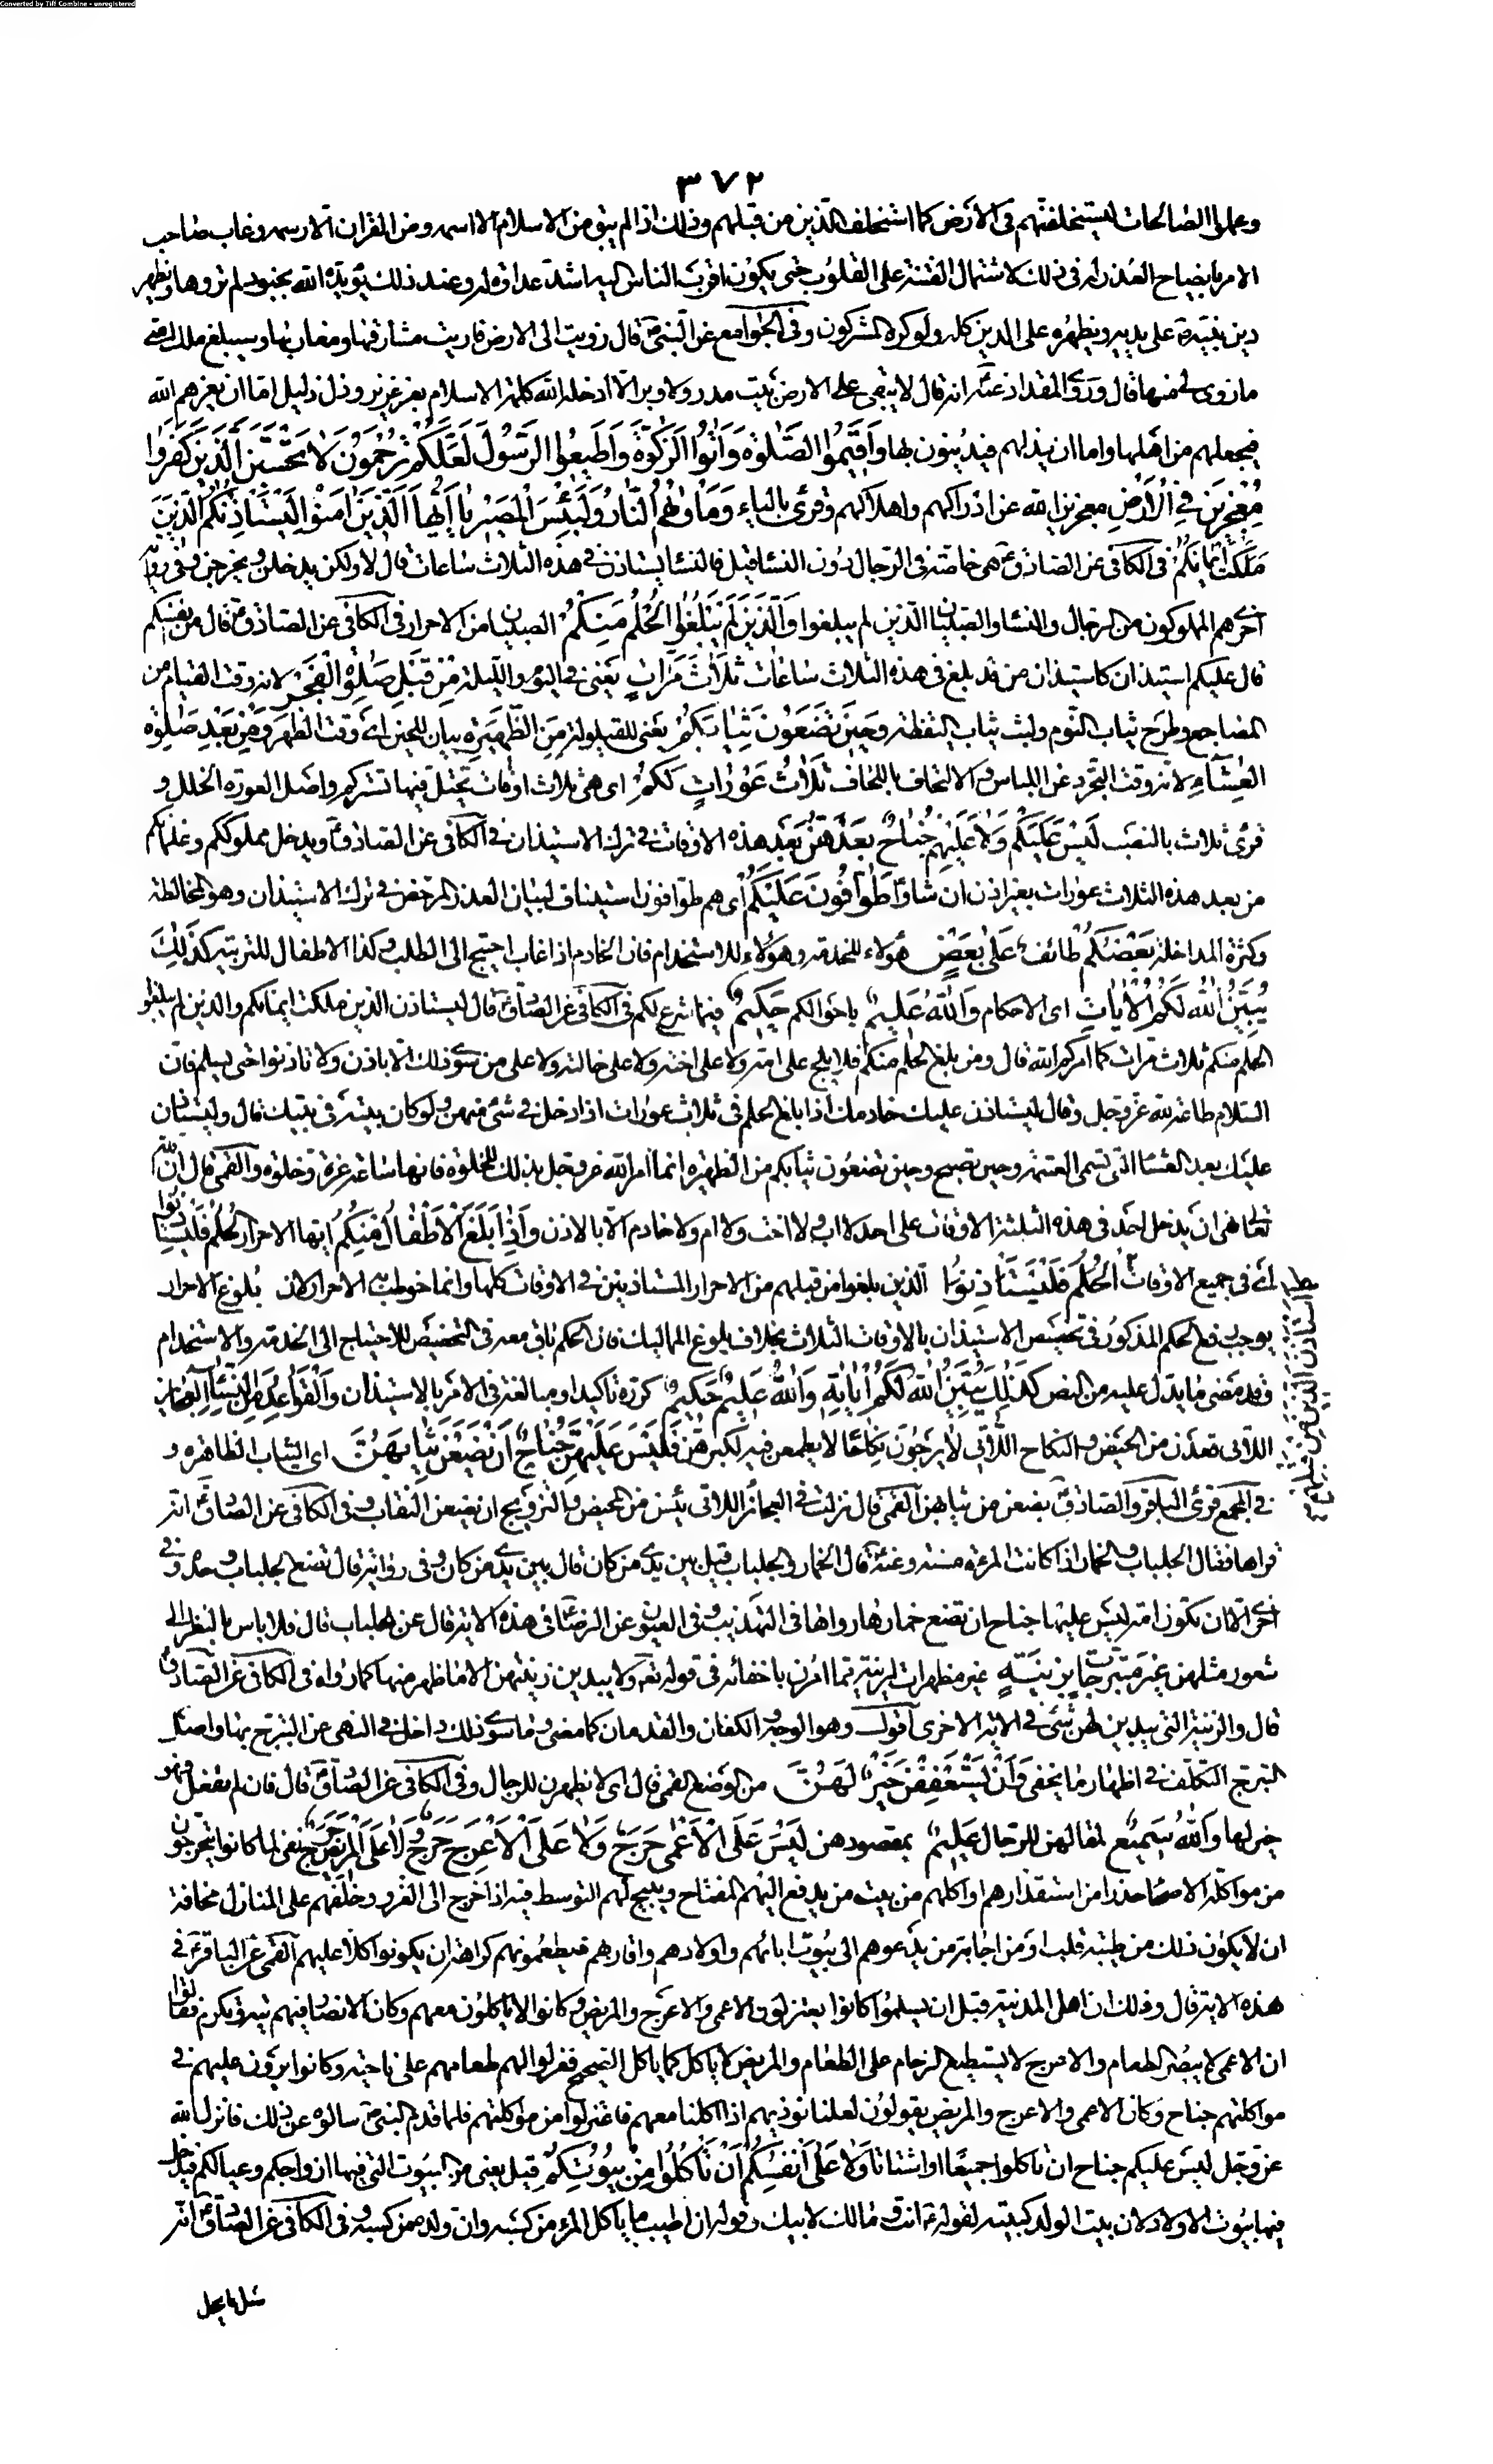 Converted by Tiff Combine - unregistered
٣٧٢
وعملوا الصالحات ليستخلفنهم فى الارض كما استخلف الذين من قبلهم وذلك اذا لم يبق من الاسلام الا اسمه ومن القران الا رسمه وغاب صاحب
الامر بايضاح العذر له فى ذلك لاشتمال الفتنة على القلوب حتى يكون اقرب الناس اليه اشد عداوة له وعند ذلك يؤيده الله بجنود لم تروها ويظهر
دين نبيه ص على يديه ويظهره على الدين كله ولو كره المشركون وفى الجوامع عن النبى ص قال زويت لى الارض فاريت مشارقها ومغاربها وسيبلغ ملك امتى
ما زوى لى منها قال وروى المقداد عنه انه قال لا يبقى على الارض بيت مدر ولا وبر الا ادخله الله كلمة الاسلام بعز عزيز وذل ذليل اما ان يعزهم الله
فيجعلهم من اهلها واما ان يذلهم فيدينون بها وَاَقِيمُوا الصَّلٰوةَ وَاٰتُوا الزَّكٰوةَ وَاَطِيعُوا الرَّسُولَ لَعَلَّكُمْ تُرْحَمُونَ لَا تَحْسَبَنَّ الَّذِينَ كَفَرُوا
مُعْجِزِينَ فِى الْاَرْضِ معجزين الله عن ادراكهم واهلاكهم وقرئ بالياء وَمَاْوٰيهُمُ النَّارُ وَلَبِئْسَ الْمَصِيرُ يَا اَيُّهَا الَّذِينَ اٰمَنُوا لِيَسْتَاْذِنْكُمُ الَّذِينَ
مَلَكَتْ اَيْمَانُكُمْ فى الكافى عن الصادق ع هى خاصة فى الرجال دون النساء قيل فالنساء يستاذن فى هذه الثلاث ساعات قال لا ولكن يدخلن ويخرجن وفى رواية
اخرى هم المملوكون من الرجال والنساء والصبيان الذين لم يبلغوا وَالَّذِينَ لَمْ يَبْلُغُوا الْحُلُمَ مِنْكُمْ الصبيان من الاحرار فى الكافى عن الصادق ع قال من انفسكم
قال عليكم استيذان كاستيذان من قد بلغ فى هذه الثلاث ساعات ثَلَاثَ مَرَّاتٍ يعنى فى اليوم والليلة مِنْ قَبْلِ صَلٰوةِ الْفَجْرِ لانه وقت القيام من
المضاجع وطرح ثياب النوم ولبث ثياب اليقظة وَحِينَ تَضَعُونَ ثِيَابَكُمْ يعنى للقيلولة مِنَ الظَّهِيرَةِ بيان للحين اى وقت الظهر وَمِنْ بَعْدِ صَلٰوةِ
الْعِشَاءِ لانه وقت التجرد عن اللباس والالتحاف باللحاف ثَلَاثُ عَوْرَاتٍ لَكُمْ اى هى ثلاث اوقات يختل فيها تستركم واصل العورة الخلل و
قرئ ثلاث بالنصب لَيْسَ عَلَيْكُمْ وَلَا عَلَيْهِمْ جُنَاحٌ بَعْدَهُنَّ بعد هذه الاوقات فى ترك الاستيذان فى الكافى عن الصادق ع ويدخل مملوككم وغلمانكم
من بعد هذه الثلاث عورات بغير اذن ان شاؤا طَوَّافُونَ عَلَيْكُمْ اى هم طوافون استيناف لبيان العذر المرخص فى ترك الاستيذان وهو المخالطة
وكثرة المداخلة بَعْضُكُمْ طائف عَلٰى بَعْضٍ هؤلاء للخدمة وهؤلاء للاستخدام فان الخادم اذا غاب احتيج الى الطلب وكذا الاطفال للتربية كَذٰلِكَ
يُبَيِّنُ اللهُ لَكُمُ الْاٰيَاتِ اى الاحكام وَاللهُ عَلِيمٌ باحوالكم حَكِيمٌ فيما شرع لكم فى الكافى عن الصادق ع قال ليستاذن الذين ملكت ايمانكم والذين لم يبلغوا
الحلم منكم ثلاث مرات كما امركم الله قال ومن بلغ الحلم منكم فلا يلج على امه ولا على اخته ولا على خالته ولا على من سوى ذلك الا باذن ولا تاذنوا حتى يسلم فان
السلام طاعة لله عز وجل وقال ليستاذن عليك خادمك اذا بلغ الحلم فى ثلاث عورات اذا دخل فى شئ منهن ولو كان بيته فى بيتك قال وليستاذن
عليك بعد العشاء التى تسمى العتمة وحين تصبح وحين تضعون ثيابكم من الظهيرة انما امر الله عز وجل بذلك للخلوة فانها ساعة غرة وخلوة والقمى قال ان الله
تعالى نهى ان يدخل احد فى هذه الثلثة الاوقات على احد لا اب ولا اخت ولا ام ولا خادم الا بالاذن وَاِذَا بَلَغَ الْاَطْفَالُ مِنْكُمُ ايها الاحرار الْحُلُمَ فَلْيَسْتَاْذِنُوا
اى فى جميع الاوقات الْحُلُمَ فَلْيَسْتَاْذِنُوا الذين بلغوا من قبلهم من الاحرار المستاذنين فى الاوقات كلها وانما خوطب به الاحرار لان بلوغ الاحرار
كَمَا اسْتَاْذَنَ الَّذِينَ مِنْ قَبْلِهِمْ
يوجب رفع الحكم المذكور فى تخصيص الاستيذان بالاوقات الثلاث بخلاف بلوغ المماليك فان الحكم باق معه فى التخصيص للاحتياج الى الخدمة والاستخدام
وقد مضى ما يدل عليه من النص كَذٰلِكَ يُبَيِّنُ اللهُ لَكُمْ اٰيَاتِهِ وَاللهُ عَلِيمٌ حَكِيمٌ كرره تاكيدا ومبالغة فى الامر بالاستيذان وَالْقَوَاعِدُ مِنَ النِّسَاءِ العجايز
اللاتى قعدن من الحيض والنكاح اللَّاتِى لَا يَرْجُونَ نِكَاحًا لا يطمعن فيه لكبرهن فَلَيْسَ عَلَيْهِنَّ جُنَاحٌ اَنْ يَضَعْنَ ثِيَابَهُنَّ اى الثياب الظاهرة و
فى المجمع قرئ الباقر والصادق ع يضعن من ثيابهن القمى قال نزلت فى العجائز اللاتى يئسن من المحيض والتزويج ان يضعن النقاب وفى الكافى عن الصادق ع انه
قراها فقال الجلباب والخمار اذا كانت المرءة مسنة وعنه ع قال الخمار والجلباب قيل بين يدى من كان قال بين يدى من كان وفى رواية قال تضع الجلباب وحده وفى
اخرى الا ان تكون امة ليس عليها جناح ان تضع خمارها رواها فى التهذيب وفى العيون عن الرضا ع فى هذه الاية قال عن الجلباب قال فلا باس بالنظر الى
شعور مثلهن غَيْرَ مُتَبَرِّجَاتٍ بِزِينَةٍ غير مظهرات لزينة مما امرن باخفائه فى قوله تع ولا يبدين زينتهن الا ما ظهر منها كما رواه فى الكافى عن الصادق ع
قال والزينة التى يبدين لهن شئ فى الاية الاخرى اقول وهو الوجه والكفان والقدمان كما مضى وما سوى ذلك داخل فى النهى عن التبرج بها واصل
التبرج التكلف فى اظهار ما يخفى وَاَنْ يَسْتَعْفِفْنَ خَيْرٌ لَهُنَّ من الوضع القمى قال اى لا يظهرن للرجال وفى الكافى عن الصادق ع قال فان لم تفعل فهو
خير لها وَاللهُ سَمِيعٌ لمقالهن للرجال عَلِيمٌ بمقصودهن لَيْسَ عَلَى الْاَعْمٰى حَرَجٌ وَلَا عَلَى الْاَعْرَجِ حَرَجٌ وَلَا عَلَى الْمَرِيضِ حَرَجٌ نفى لما كانوا يتحرجون
من مواكلة الاصحاء حذرا من استقذارهم او اكلهم من بيت من يدفع اليهم المفتاح ويبيح لهم التوسط فيه اذا خرج الى الغزو وخلفهم على المنازل مخافة
ان لا يكون ذلك من طيبة قلب او من اجابة من يدعوهم الى بيوت ابائهم واولادهم واقاربهم فيطعمونهم كراهة ان يكونوا كلا عليهم القمى عن الباقر ع فى
هذه الاية قال وذلك ان اهل المدينة قبل ان يسلموا كانوا يعتزلون الاعمى والاعرج والمريض وكانوا لا ياكلون معهم وكان الانصار فيهم تيه وتكرم فقالوا
ان الاعمى لا يبصر الطعام والاعرج لا يستطيع الزحام على الطعام والمريض لا ياكل كما ياكل الصحيح فعزلوا لهم طعامهم على ناحية وكانوا يرون عليهم فى
مواكلتهم جناح وكان الاعمى والاعرج والمريض يقولون لعلنا نوذيهم اذا اكلنا معهم فاعتزلوا من مواكلتهم فلما قدم النبى ص سالوه عن ذلك فانزل الله
عز وجل ليس عليكم جناح ان تاكلوا جميعا او اشتاتا وَلَا عَلٰى اَنْفُسِكُمْ اَنْ تَاْكُلُوا مِنْ بُيُوتِكُمْ قيل يعنى من البيوت التى فيها ازواجكم وعيالكم فيدخل
فيها بيوت الاولاد لان بيت الولد كبيته لقوله ع انت ومالك لابيك وقوله ان اطيب ما ياكل المرء من كسبه وان ولده من كسبه وفى الكافى عن الصادق ع انه
سئل ما يحل